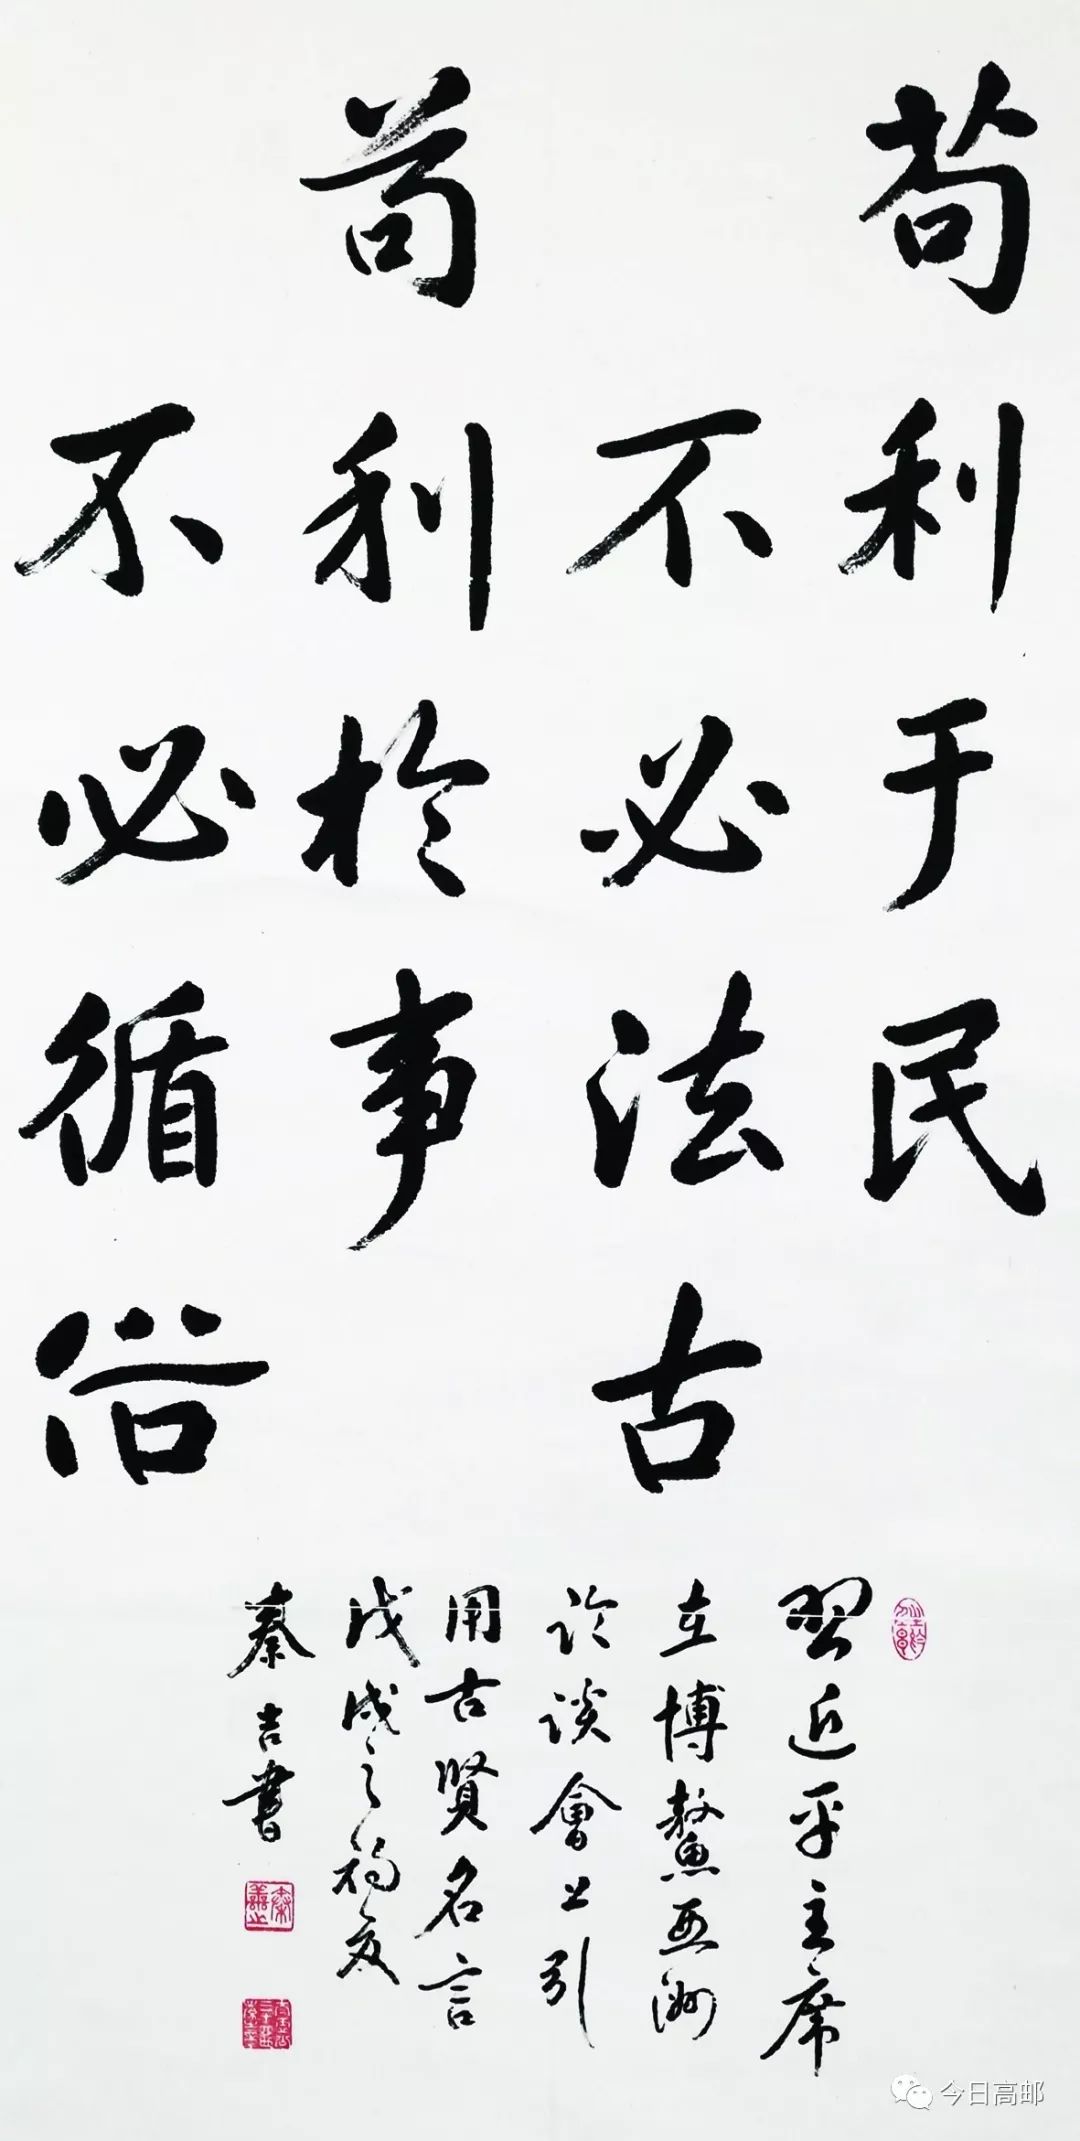 苟利于民
不必法古
苟利於事
不必循俗
習近平主席
在博鰲亞洲
论谈會上引
用古賢名言
戊戌之初夏
秦吉書
今日高邮